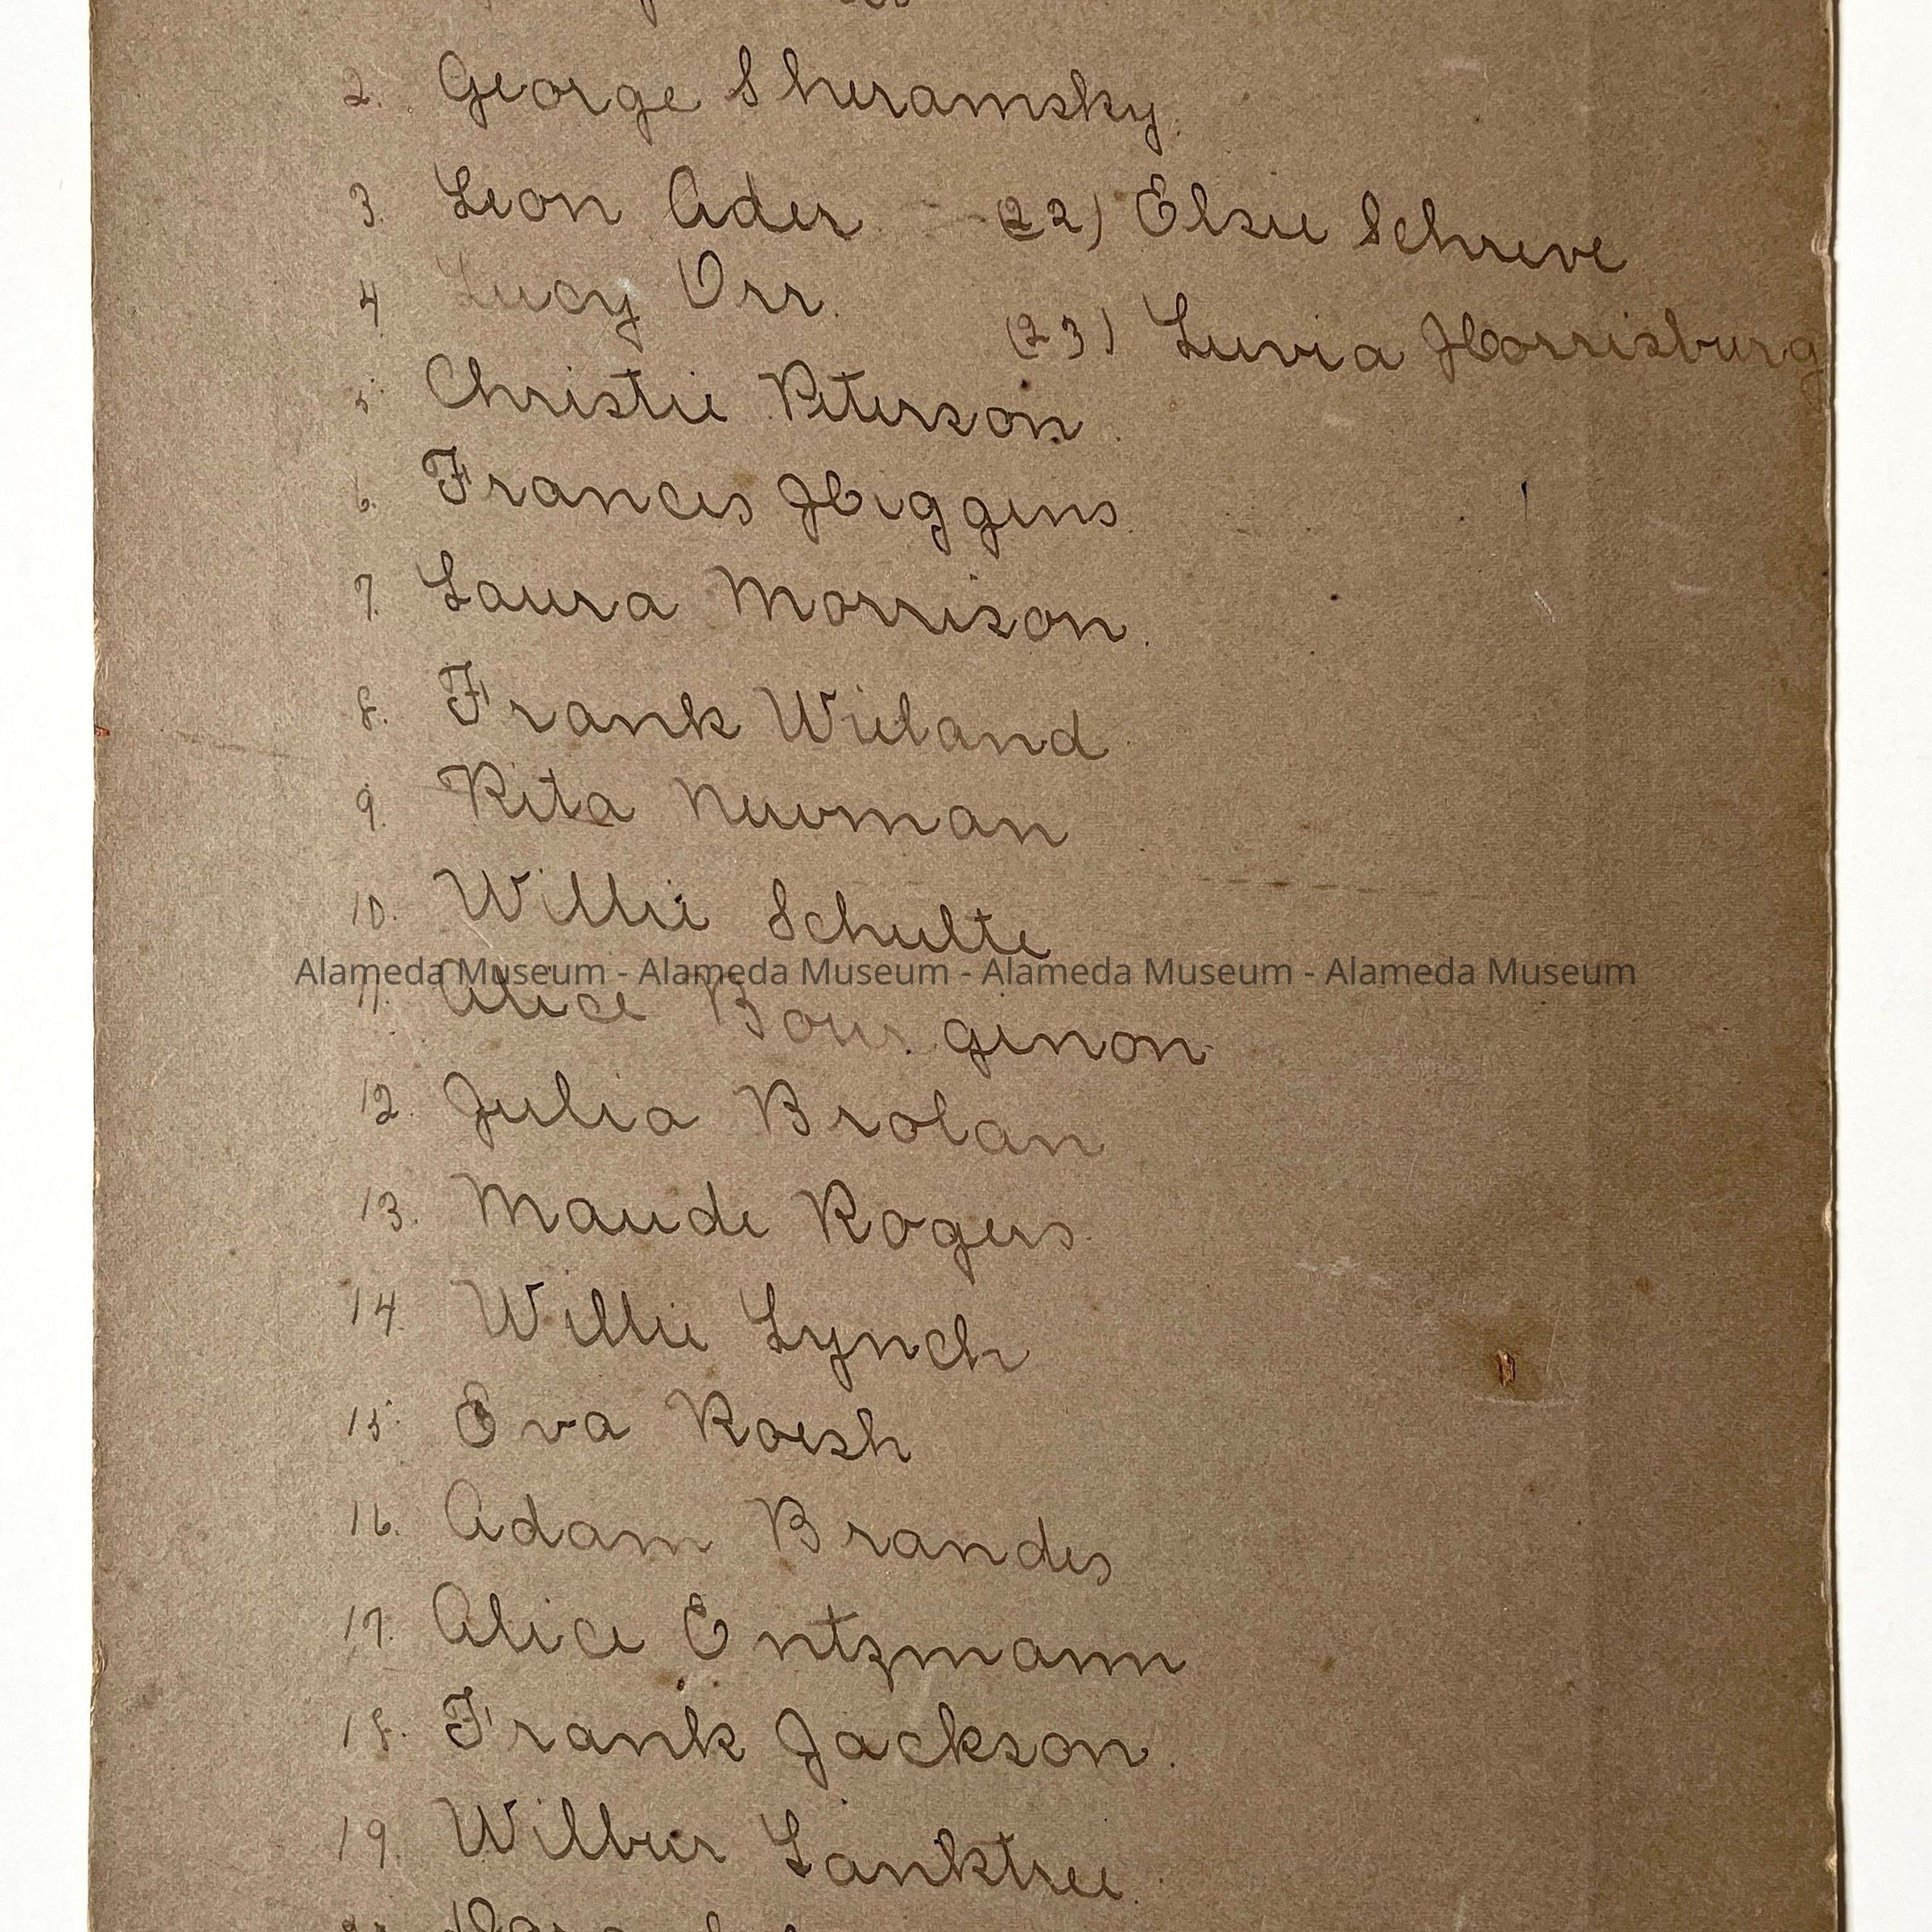 2. George Sheramsky.
3. Leon Ader (22) Elsie Schreve
4 Lucy Orr.
(23) Luvia Horrisburg
5. Christie Peterson.
6. Frances Higgens.
7. Laura Morrison.
8. Frank Wieland
9. Rita Newman
10. Willie Schulte
Alameda Museum - Alameda Museum - Alameda Museum - Alameda Museum
11. Alice Bourgenon
12. Julia Brolan
13. Maude Rogers.
14. Willie Lynch
15. Eva Roesh
16. Adam Brandes
17. Alice Entzmann
18. Frank Jackson.
19. Wilbur Lanktree.